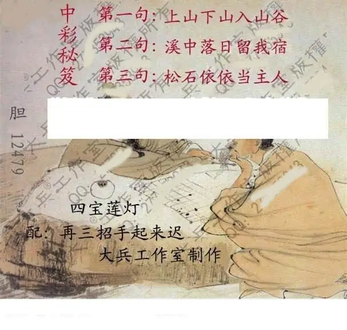 中彩秘笈
第一句：上山下山入山谷
第二句：溪中落日留我宿
第三句：松石依依当主人
胆 12479
四宝莲灯
配：再三招手起来迟
大兵工作室制作